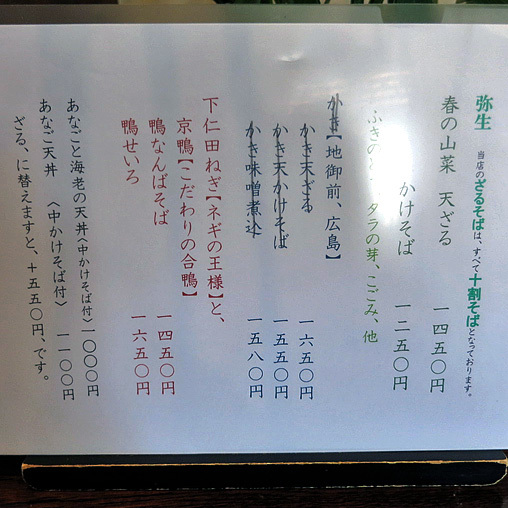 弥生 当店のざるそばは、すべて十割そばとなっております。
春の山菜 天ざる 一四五〇円
かけそば 一二五〇円
ふきの タラの芽、こごみ、他
かき【地御前、広島】
かき天ざる 一六五〇円
かき天かけそば 一五五〇円
かき味噌煮込 一五八〇円
下仁田ねぎ【ネギの王様】と、
京鴨【こだわりの合鴨】
鴨なんばそば 一四五〇円
鴨せいろ 一六五〇円
あなごと海老の天丼〈中かけそば付〉一〇〇〇円
あなご天丼 〈中かけそば付〉 一一〇〇円
ざる、に替えますと、+五五〇円、です。